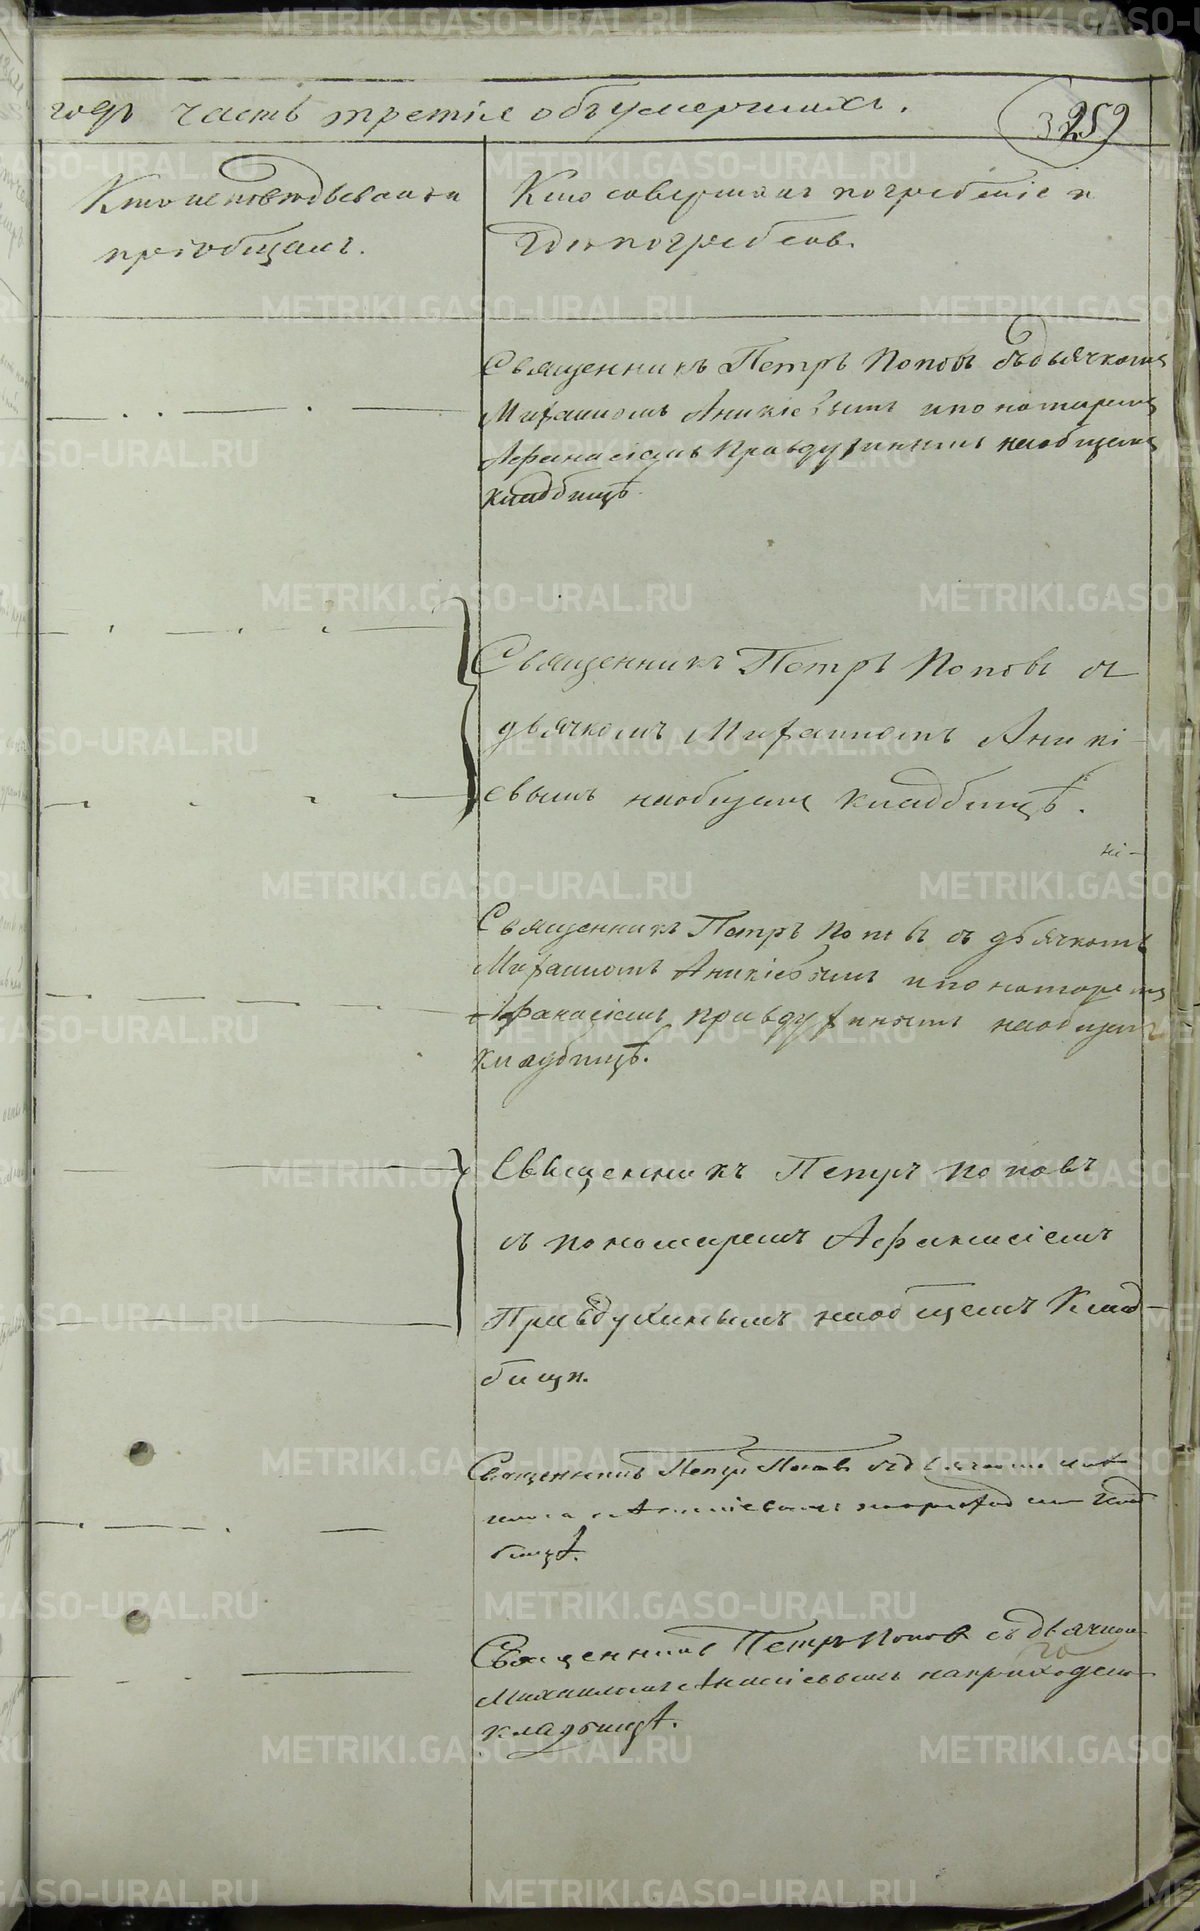 годъ часть третія объумершихъ.
3 259
Кто исповѣдывалъ и
пріобщалъ.
Кто совершалъ погребеніе и
гдѣ погребенъ.
Священникъ Петръ Поповъ съдьячкомъ
Михаиломъ Аникіевымъ ипономаремъ
Афанасіемъ Правдухинымъ наобщемъ
кладбищѣ.
Священникъ Петръ Поповъ съ
дьячкомъ Михаиломъ Аникі-
евымъ наобщемъ кладбищѣ.
кі-
Священникъ Петръ Поповъ съ дьячкомъ
Михаиломъ Аникіевымъ ипономаремъ
Афанасіемъ Правдухинымъ наобщемъ
кладбищѣ.
Священникъ Петръ Поповъ
съ пономаремъ Афанасіемъ
Правдухинымъ наобщемъ Клад-
бищи.
Священникъ Петръ Поповъ съдьячкомъ Мих
аиломъ Аникіевымъ наприходском клад
бищѣ.
Священникъ Петръ Поповъ съдьячком
Михаиломъ Аникіевымъ наприходском
кладбищѣ.
METRIKI.GASO-URAL.RU